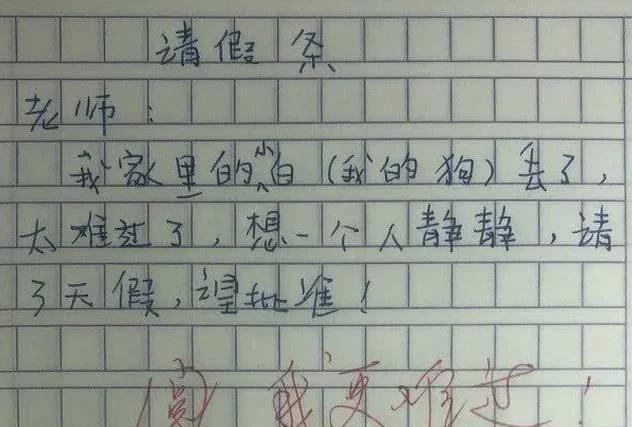 请假条
老师：
我家里的小白（我的狗）丢了，
太难过了，想一个人静静，请
3天假，望批准！
我更难过！